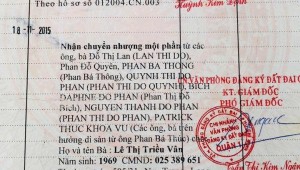 Theo hồ sơ số 012004.CN.003
Huỳnh Kim Định
18 -11- 2015
Nhận chuyển nhượng một phần từ các
ông, bà Đỗ Thị Lan (LAN THI DO),
Phan Đỗ Quyên, PHAN BA THONG
(Phan Bá Thông), QUYNH THI DO
PHAN (PHAN THI DO QUYNH), BICH
DAPHNE DO PHAN (Phan Thị Đỗ
Bích), NGUYEN THANH DO PHAN
(PHAN THI DO PHAN), PATRICK
THUC KHOA VU (Các ông, bà trên
hưởng di sản từ ông Phan Bá Thúc) cho
Họ và tên Bà : Lê Thị Triều Vân
Năm sinh: 1969 CMND: 025 389 651
VĂN PHÒNG ĐĂNG KÝ ĐẤT ĐAI
KT. GIÁM ĐỐC
PHÓ GIÁM ĐỐC
CHI NHÁNH
VĂN PHÒNG
ĐĂNG KÝ ĐẤT ĐAI
QUẬN 1
Thị Kim Ngân